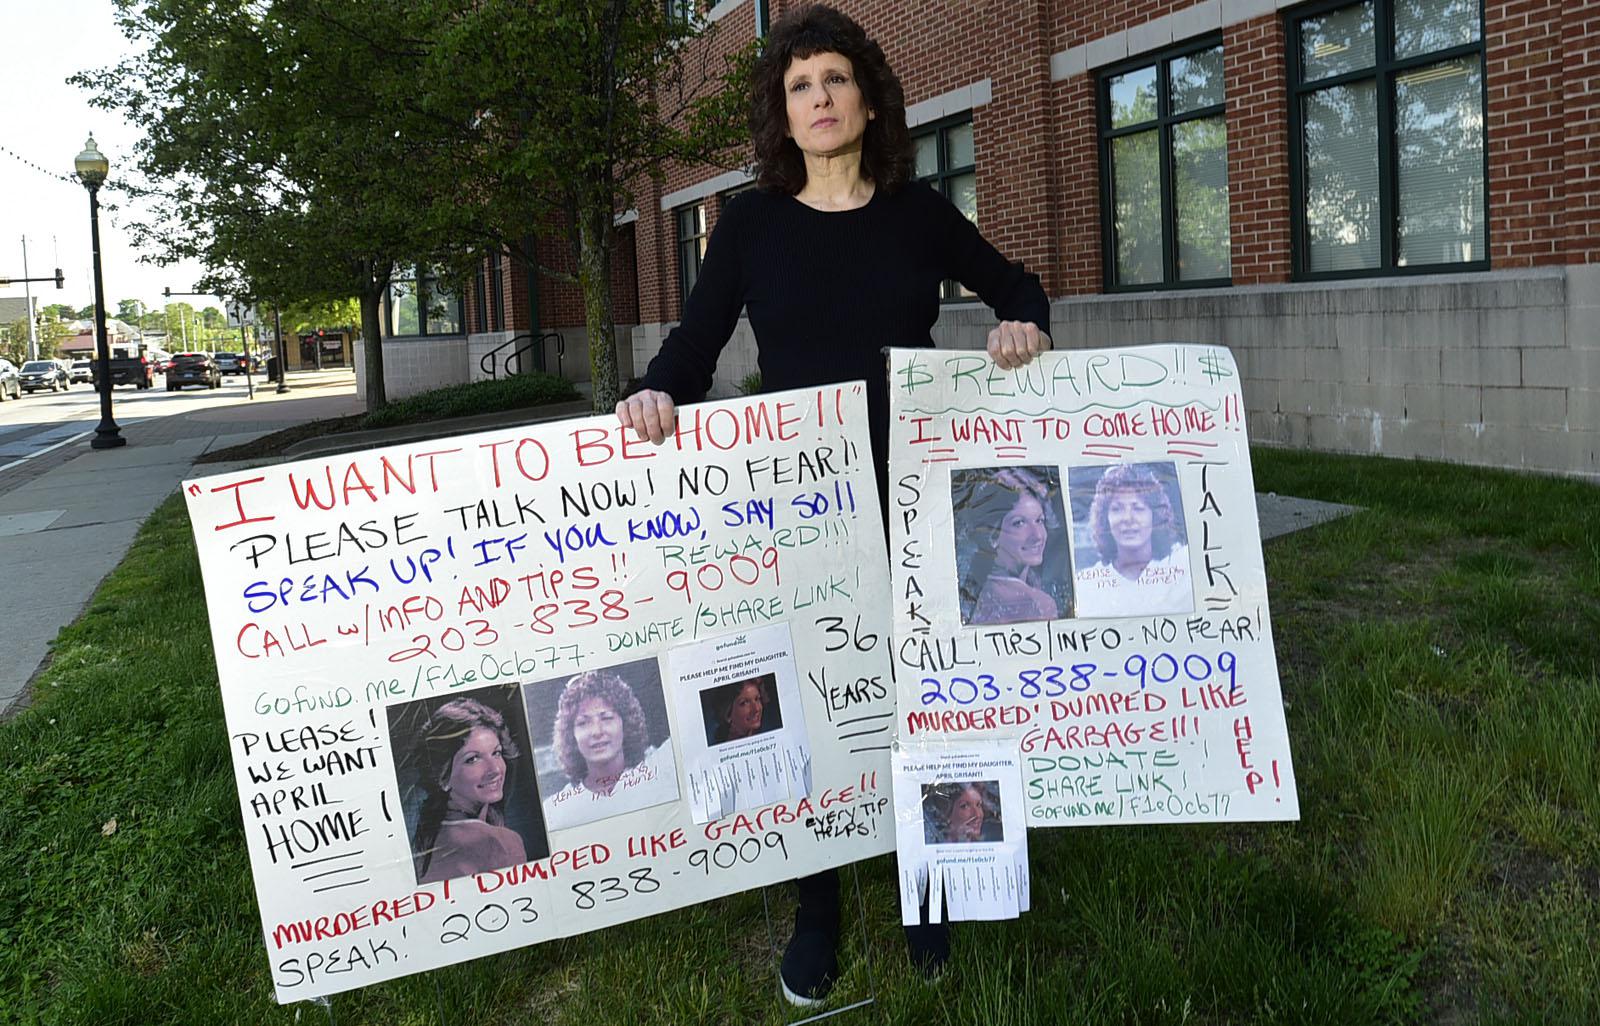 "I WANT TO BE HOME!!"
PLEASE TALK NOW! NO FEAR!!
SPEAK UP! IF YOU KNOW, SAY SO!!
CALL w/INFO AND TIPS!! REWARD!!!
203-838-9009
GOFUND.me/f1e0cb77- DONATE/SHARE LINK!
36
YEARS!
PLEASE!
WE WANT
APRIL
HOME!
PLEASE BRING
ME HOME!
gofundme
PLEASE HELP ME FIND MY DAUGHTER,
APRIL GRISANTI
gofund.me/f1e0cb77
MURDERED! DUMPED LIKE GARBAGE!!
SPEAK! 203 838-9009
EVERY TIP
HELPS!
$ REWARD!! $
"I WANT TO COME HOME"!!
SPEAK
TALK
PLEASE BRING
ME HOME!
CALL! TIPS/INFO-NO FEAR!
203-838-9009
MURDERED! DUMPED LIKE
GARBAGE!!!
DONATE!
SHARE LINK!
GOFUNDME/f1e0cb77
HELP!
PLEASE HELP ME FIND MY DAUGHTER,
APRIL GRISANTI
gofund.me/f1e0cb77